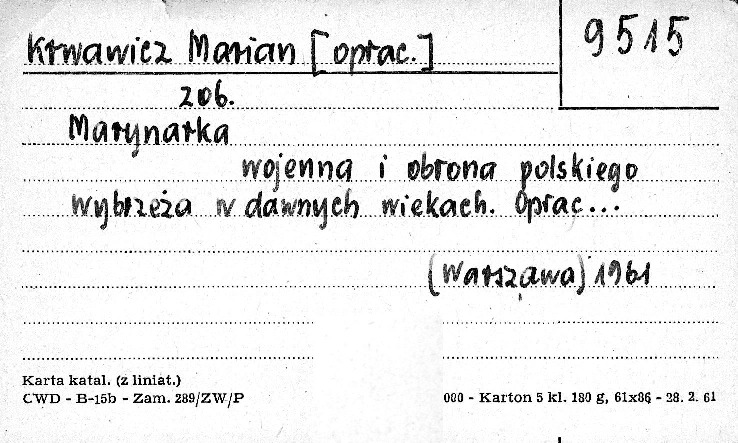 Krwawicz Marian [oprac.]
9515
zob.
Marynarka
wojenna i obrona polskiego
wybrzeża w dawnych wiekach. Oprac...
(Warszawa) 1961
Karta katal. (z liniat.)
CWD - B-15b - Zam. 289/ZW/P
000 - Karton 5 kl. 180 g, 61x86 - 28. 2. 61